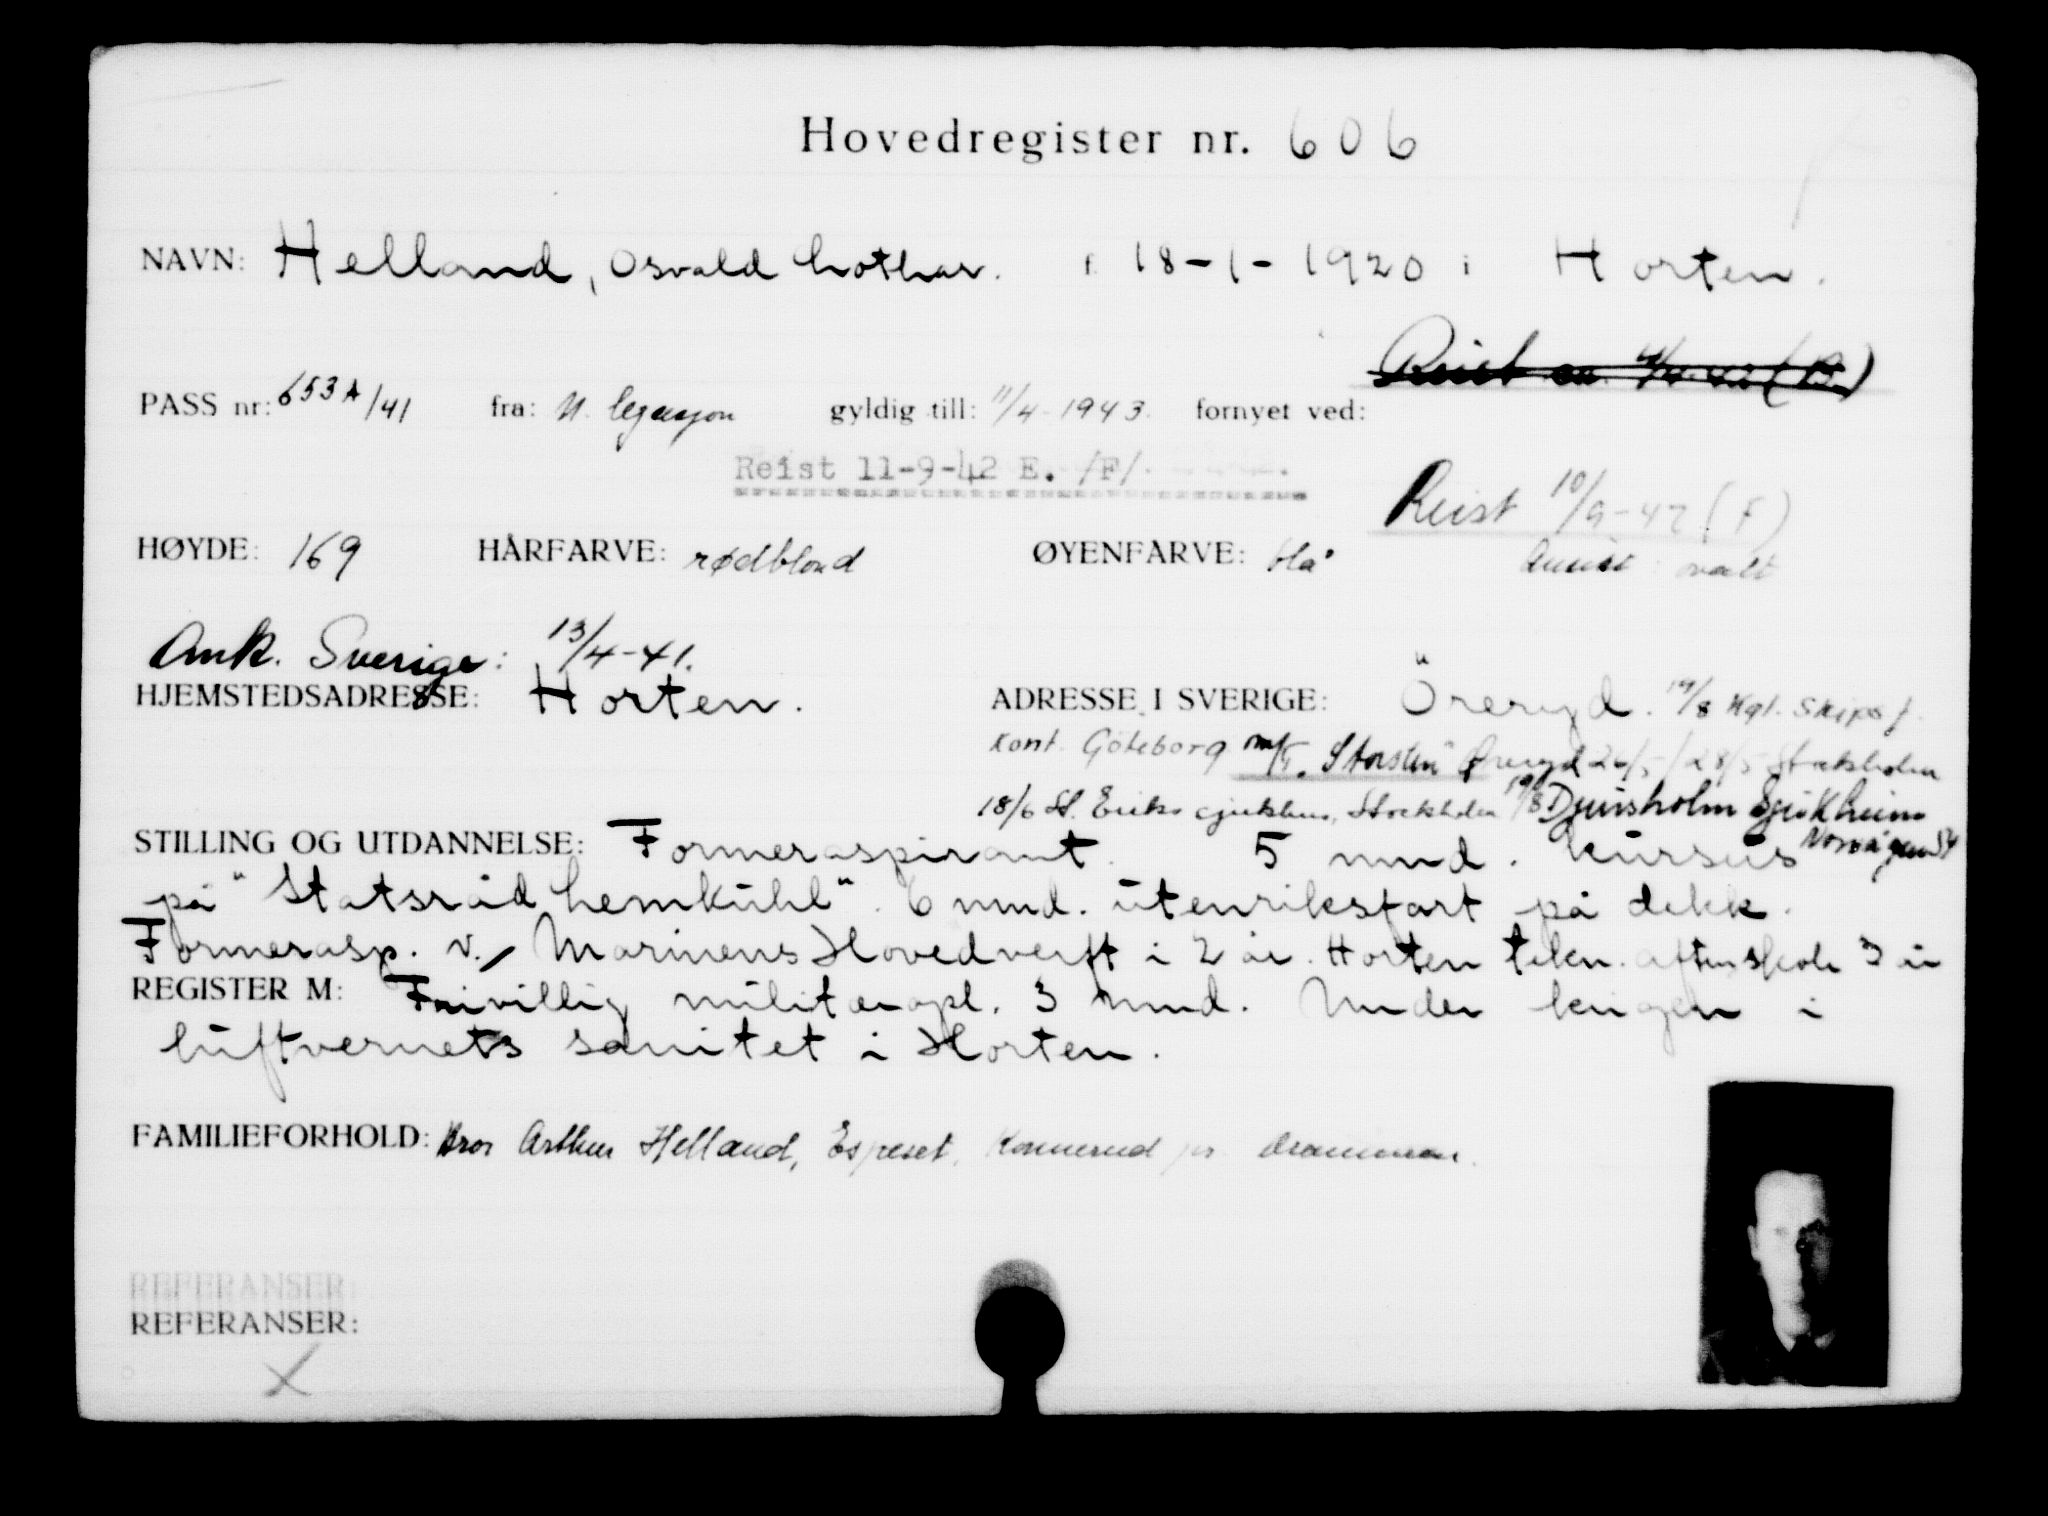 Hovedregister nr. 606
NAVN: Helland, Osvald Lothar. f. 18-1-1920 i Horten.
Reist
PASS nr: 653A/41 fra: N. legasjon gyldig till: 11/4-1943. fornyet ved:
Reist 11-9-42 E. /F/.
Reist 10/9-42 (F)
HØYDE: 169 HÅRFARVE: rødblond ØYENFARVE: blå
Ansikt: ovalt
Ank. Sverige: 13/4-41.
HJEMSTEDSADRESSE: Horten. ADRESSE I SVERIGE: Öreryd. 19/8 Kgl. Skipsf.
kont. Göteborg m/T. "Storsten" Öreryd 26/5 / 28/5 Stockholm
18/6 St. Eriks sjukhus, Stockholm 19/8 Djursholm Sjukheim
STILLING OG UTDANNELSE: Formeraspirant. 5 mnd. kursus
på "Statsråd Lemkühl". 6 mnd. utenriksfart på dekk.
Formerasp. v./ Marinens Hovedverft i 2 år. Horten tekn. aftenskole 3 år
REGISTER M: Frivillig militæropl. 3 mnd. Under krigen i
luftvernets sanitet i Horten.
FAMILIEFORHOLD: Bror Arthur Helland, Espeset, Konnerud pr. Drammen.
REFERANSER:
REFERANSER:
X